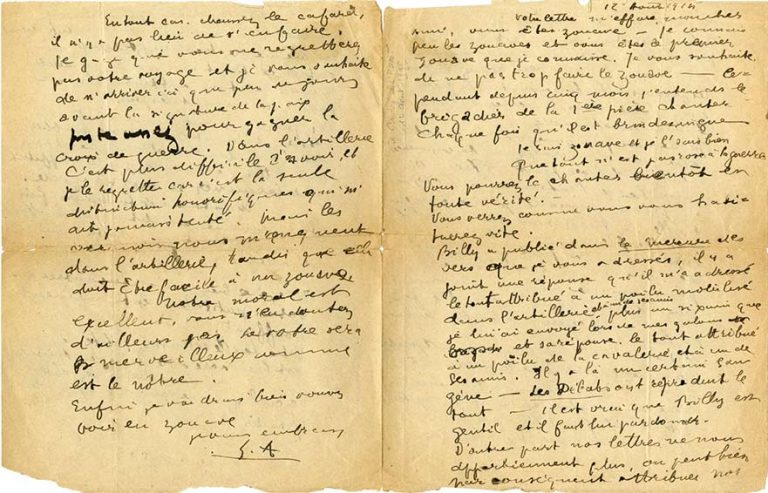 En tout cas, chaussez le cafard,
il n'y a pas lieu de s'en faire.
Je gage que vous ne regretterez
pas votre voyage et je vous souhaite
de n'arriver ici que peu de jours
avant la signature de la paix
juste assez pour gagner la
croix de guerre. Dans l'artillerie
c'est plus difficile à avoir, et
je le regrette car c'est la seule
distinction honorifique qui m'
ait jamais tenté. Mais les
nous manquent
dans l'artillerie, tandis que cela
doit être facile à un zouave.
Notre moral est
excellent, vous n'en doutez
d'ailleurs pas le votre sera
merveilleux comme
est le nôtre.
Enfin je voudrais bien vous
voir en zouave
G. A
12 Août 1915
Votre lettre m'effare, mon cher
ami, vous êtes zouave — Je connais
peu les zouaves et vous êtes le premier
zouave que je connaisse. Je vous souhaite
de ne pas trop faire le zouave — Ce-
pendant depuis cinq mois j'entends le
brigadier de la 1ère pièce chanter
chaque fois qu'il est brindezingue
Je suis zouave et je l'sais bien
Que tout s'est passé à la guerre
Vous pourrez le chanter bientôt en
toute vérité.
Vous verrez comme vous vous habi-
tuerez vite.
Billy a publié dans le Mercure des
vers que je vous adressés, il y a
joint une réponse qu'il m'a adressé
le tout attribué à un poilu mobilisé
dans l'artillerie et à un de ses amis
plus un sixain que
je lui ai envoyé lors de mes galons
et sa réponse. le tout attribué
à un poilu de la cavalerie et à un de
ses amis. Il y a là un certain sans
gêne — les Débats ont reproduit le
tout — il est vrai que Billy est
gentil et il faut lui pardonner.
D'autre part nos lettres ne nous
appartiennent plus, on peut bien
par conséquent attribuer nos